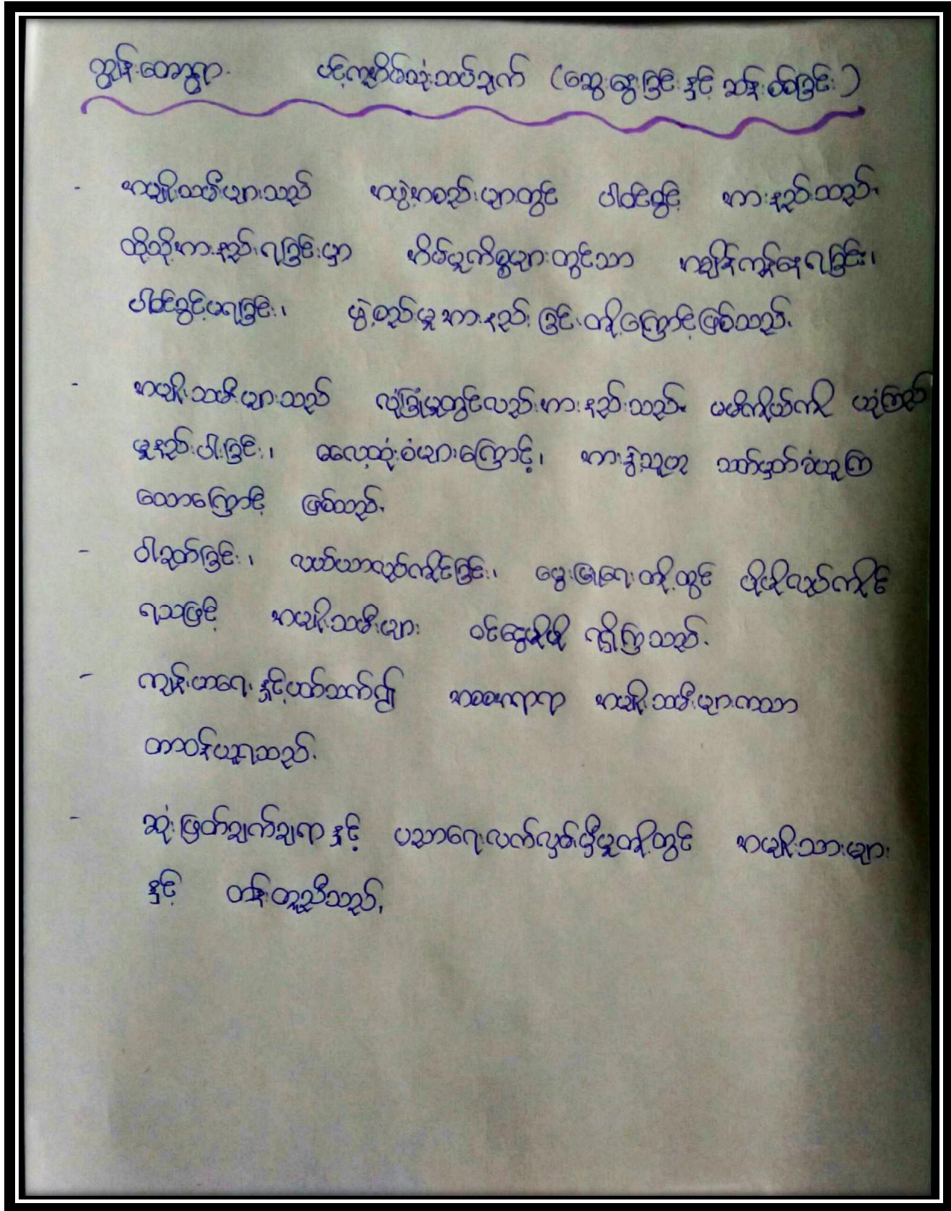 ကျွန်းတောရွာ ပင့်ကူအိမ်သုံးသပ်ချက် (ဆွေးနွေးခြင်းနှင့် ဆန်းစစ်ခြင်း)
- အမျိုးသမီးများသည် အဖွဲ့အစည်းများတွင် ပါဝင်ခွင့် အားနည်းသည်။
ထိုသို့အားနည်းရခြင်းမှာ အိမ်မှုကိစ္စများတွင်သာ အချိန်ကုန်နေရခြင်း၊
ပါဝင်ခွင့်မရခြင်း၊ ဖွဲ့စည်းမှုအားနည်းခြင်းတို့ကြောင့်ဖြစ်သည်။
- အမျိုးသမီးများသည် လုံခြုံမှုတွင်လည်းအားနည်းသည်။ မိမိကိုယ်ကို ယုံကြည်
မှုနည်းပါးခြင်း၊ ဓလေ့ထုံးစံများကြောင့်၊ အားနွဲ့သူဟု သတ်မှတ်ခံယူကြ
သောကြောင့် ဖြစ်သည်။
- ဝါးခုတ်ခြင်း၊ လယ်ယာလုပ်ကိုင်ခြင်း၊ မွေးမြူရေးတို့တွင် ပိုမိုလုပ်ကိုင်
ရသဖြင့် အမျိုးသမီးများ ဝင်ငွေပိုမို ရရှိကြသည်။
- ကျန်းမာရေးနှင့်ပတ်သက်၍ အစစအရာရာ အမျိုးသမီးများကသာ
တာဝန်ယူရသည်။
- ဆုံးဖြတ်ချက်ချရာနှင့် ပညာရေးလက်လှမ်းမှီမှုတို့တွင် အမျိုးသားများ
နှင့် တန်းတူညီသည်။